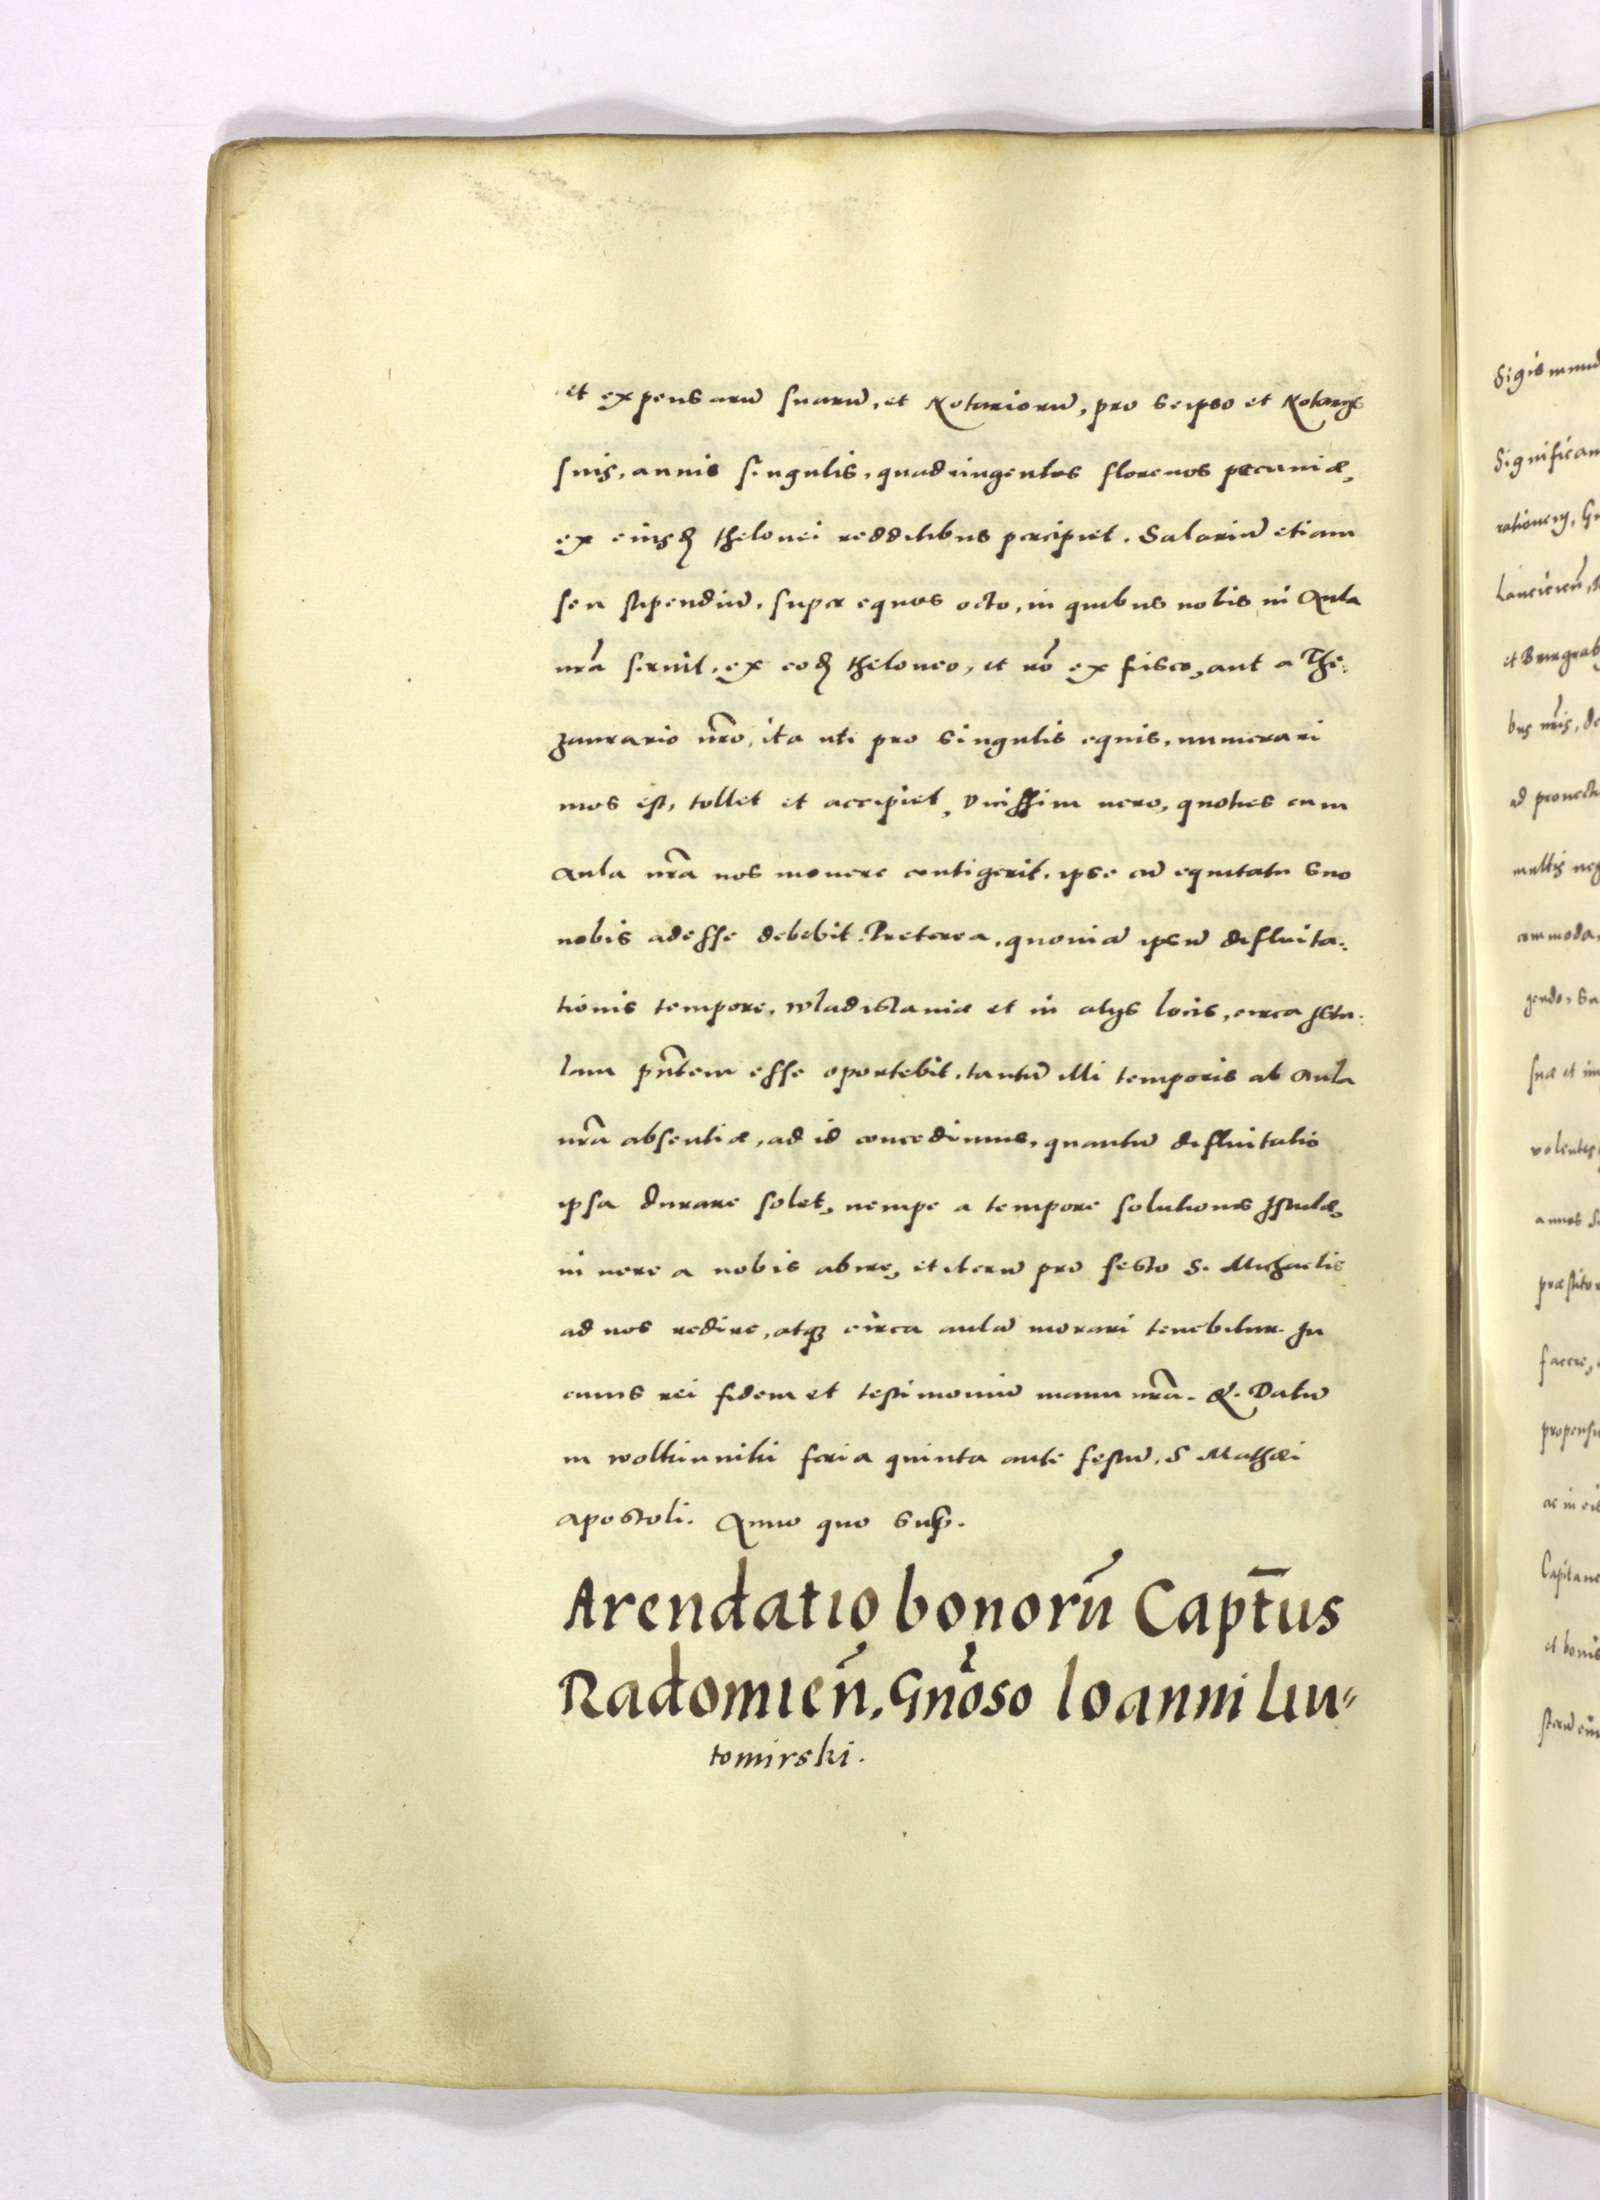 et expensarũ suarũ, et Notariorũ, pro seipso et Notarijs
suis, annis singulis, quadringentos florenos pecuniæ,
ex eiusd thelonei redditibus percipiet. Salariũ etiam
seu stipendiũ, super equos octo, in quibus nobis in Aula
nrã seruit, ex eod theloneo, et nõ ex fisco, aut a The:
zaurario nrõ, ita uti pro singulis equis, numerari
mos est, tollet et accipiet, Vicissim uero, quoties cum
Aula nrã nos mouere contigerit, ipse cũ equitatu suo
nobis adesse debebit. Preterea, quoniã ipsũ defluita:
tionis tempore, Wladislauiæ et in alijs locis, circa Istu:
lam pñtem esse oportebit, tantũ illi temporis ab Aula
nrã absentiæ, ad id concedimus, quantũ defluitatio
ipsa durare solet, nempe a tempore solutionis Istulæ,
in uere a nobis abire, et iterũ pro festo S. Michaelis
ad nos redire, atq circa aulã morari tenebitur. In
cuius rei fidem et testimoniũ manu nrã. &. Datũ
in Wolkinniki feria quinta ante festũ, S Mathæi
apostoli. Anno quo sup.
Arendatio bonorũ Capt̄us
Radomieñ, Gnõso Ioanni Lu=
tomirski.
Significam
rationem, Gn
et Burgrab
bus nrĩs, de
multis neg
commoda,
suæ et im
volentes
annos
facere,
propensu
Capitane
et bonis